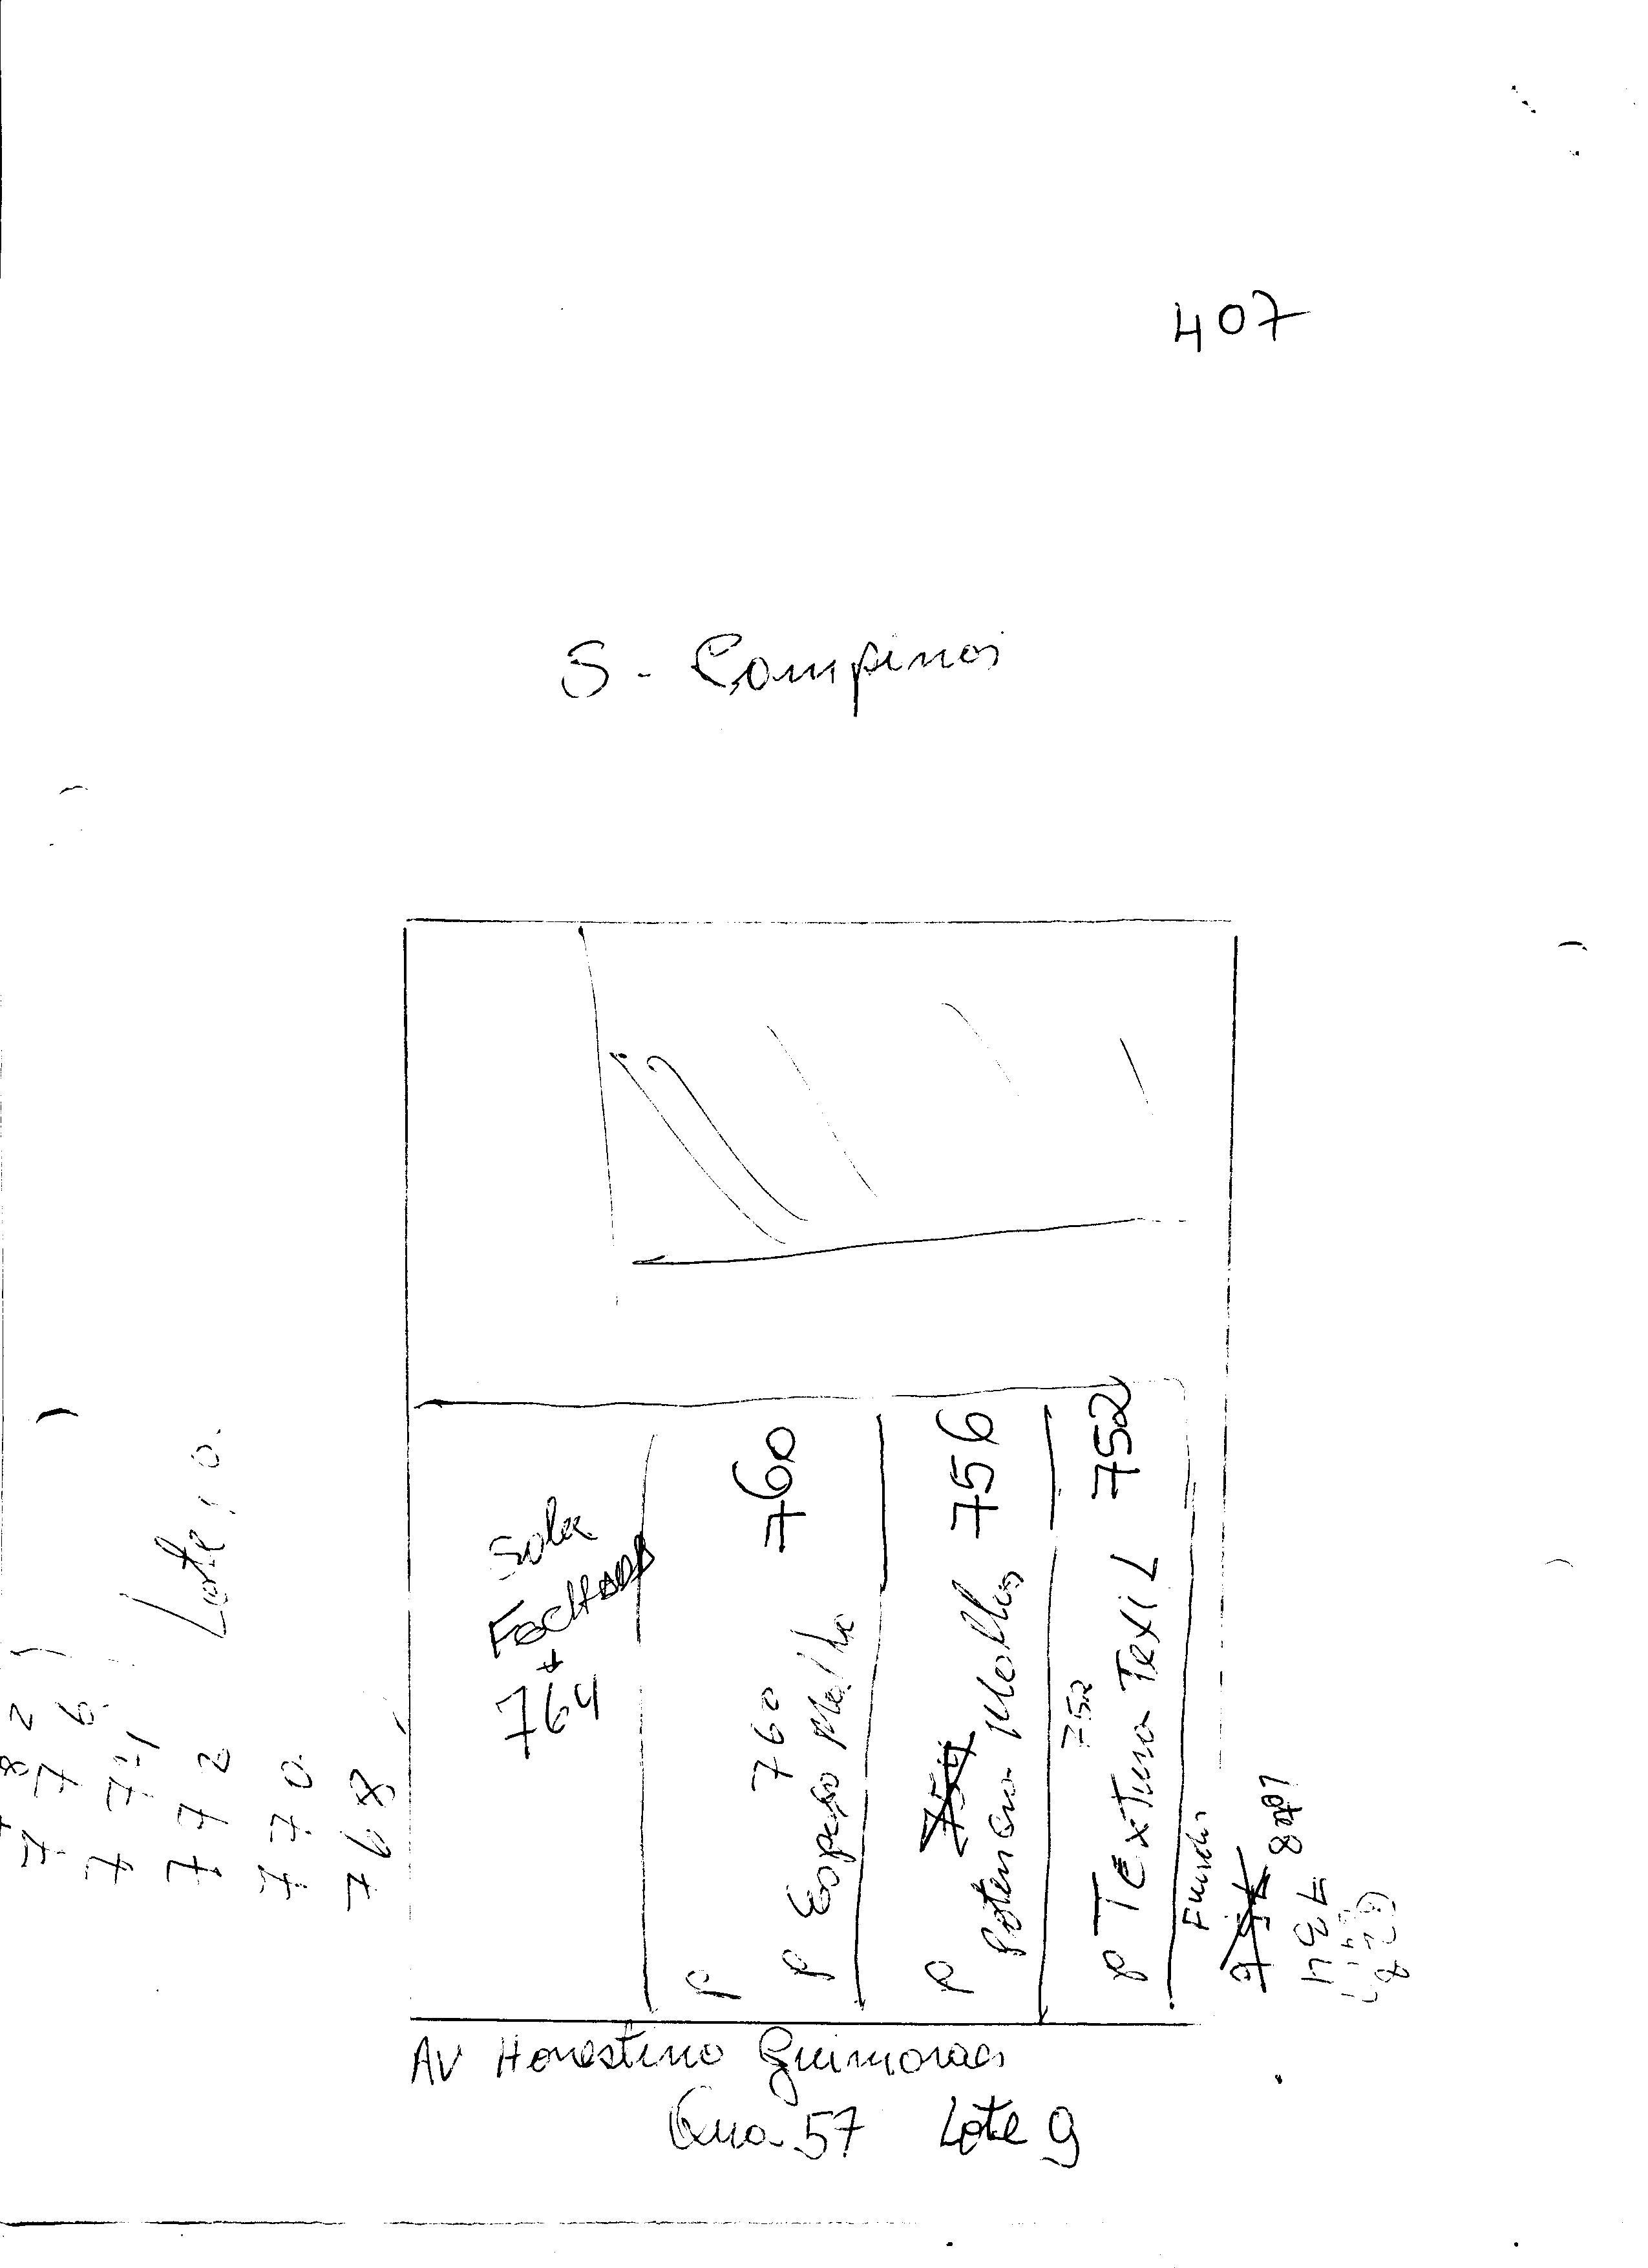 407
S - Campinas
Sala
Fachada
+
764
760
760
P
P Espaço Malha
756
P
Potencia Malhas
752
752
P TexTura TexiL
Fundos
734
Lote 10
782
776
771
772
770
768
Av Honestino Guimaraes
Qua. 57 Lote 9